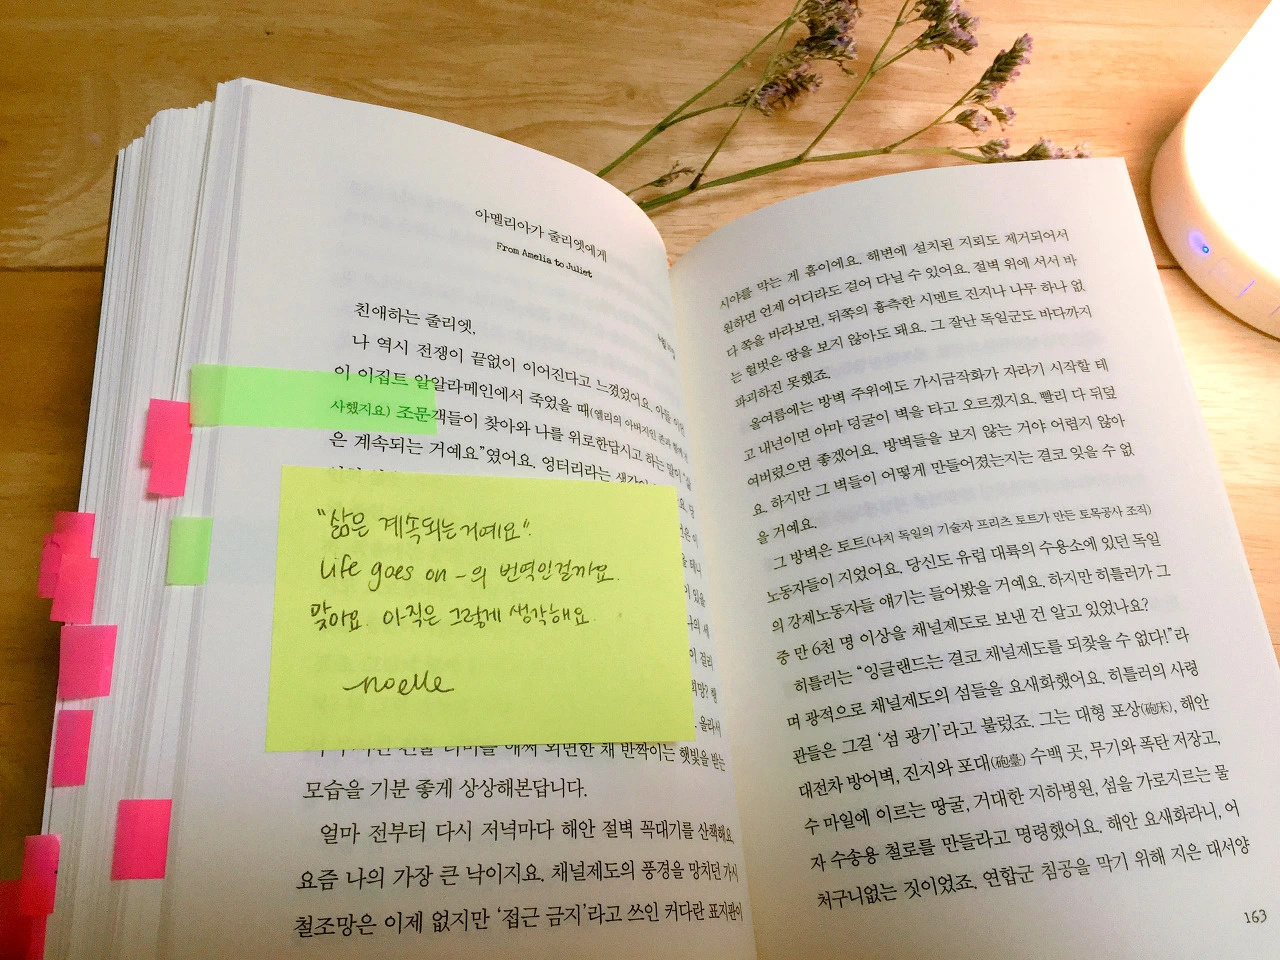 아멜리아가 줄리엣에게
From Amelia to Juliet
친애하는 줄리엣,
나 역시 전쟁이 끝없이 이어진다고 느꼈었어요. 아들
이 이집트 알알라메인에서 죽었을 때(엘리의 아버지인 존과 함께
사했지요) 조문객들이 찾아와 나를 위로한답시고 하는 말이 “삶
은 계속되는 거예요”였어요. 엉터리라는 생각이
“삶은 계속되는거예요”.
Life goes on – 의 번역인걸까요.
맞아요. 아직은 그렇게 생각해요.
noelle
외면한 채 반짝이는 햇빛을 받는
모습을 기분 좋게 상상해본답니다.
얼마 전부터 다시 저녁마다 해안 절벽 꼭대기를 산책해요.
요즘 나의 가장 큰 낙이지요. 채널제도의 풍경을 망치던 가시
철조망은 이제 없지만 ‘접근 금지’라고 쓰인 커다란 표지판이
시야를 막는 게 흠이에요. 해변에 설치된 지뢰도 제거되어서
원하면 언제 어디라도 걸어 다닐 수 있어요. 절벽 위에 서서 바
다 쪽을 바라보면, 뒤쪽의 흉측한 시멘트 진지나 나무 하나 없
는 헐벗은 땅을 보지 않아도 돼요. 그 잘난 독일군도 바다까지
파괴하진 못했죠.
올여름에는 방벽 주위에도 가시금작화가 자라기 시작할 테
고 내년이면 아마 덩굴이 벽을 타고 오르겠지요. 빨리 다 뒤덮
여버렸으면 좋겠어요. 방벽들을 보지 않는 거야 어렵지 않아
요. 하지만 그 벽들이 어떻게 만들어졌는지는 결코 잊을 수 없
을 거예요.
그 방벽은 토트(나치 독일의 기술자 프리츠 토트가 만든 토목공사 조직)
노동자들이 지었어요. 당신도 유럽 대륙의 수용소에 있던 독일
의 강제노동자들 얘기는 들어봤을 거예요. 하지만 히틀러가 그
중 만 6천 명 이상을 채널제도로 보낸 건 알고 있었나요?
히틀러는 “잉글랜드는 결코 채널제도를 되찾을 수 없다!”라
며 광적으로 채널제도의 섬들을 요새화했어요. 히틀러의 사령
관들은 그걸 ‘섬 광기’라고 불렀죠. 그는 대형 포상(砲床), 해안
대전차 방어벽, 진지와 포대(砲臺) 수백 곳, 무기와 폭탄 저장고,
수 마일에 이르는 땅굴, 거대한 지하병원, 섬을 가로지르는 물
자 수송용 철로를 만들라고 명령했어요. 해안 요새화라니, 어
처구니없는 짓이었죠. 연합군 침공을 막기 위해 지은 대서양
163